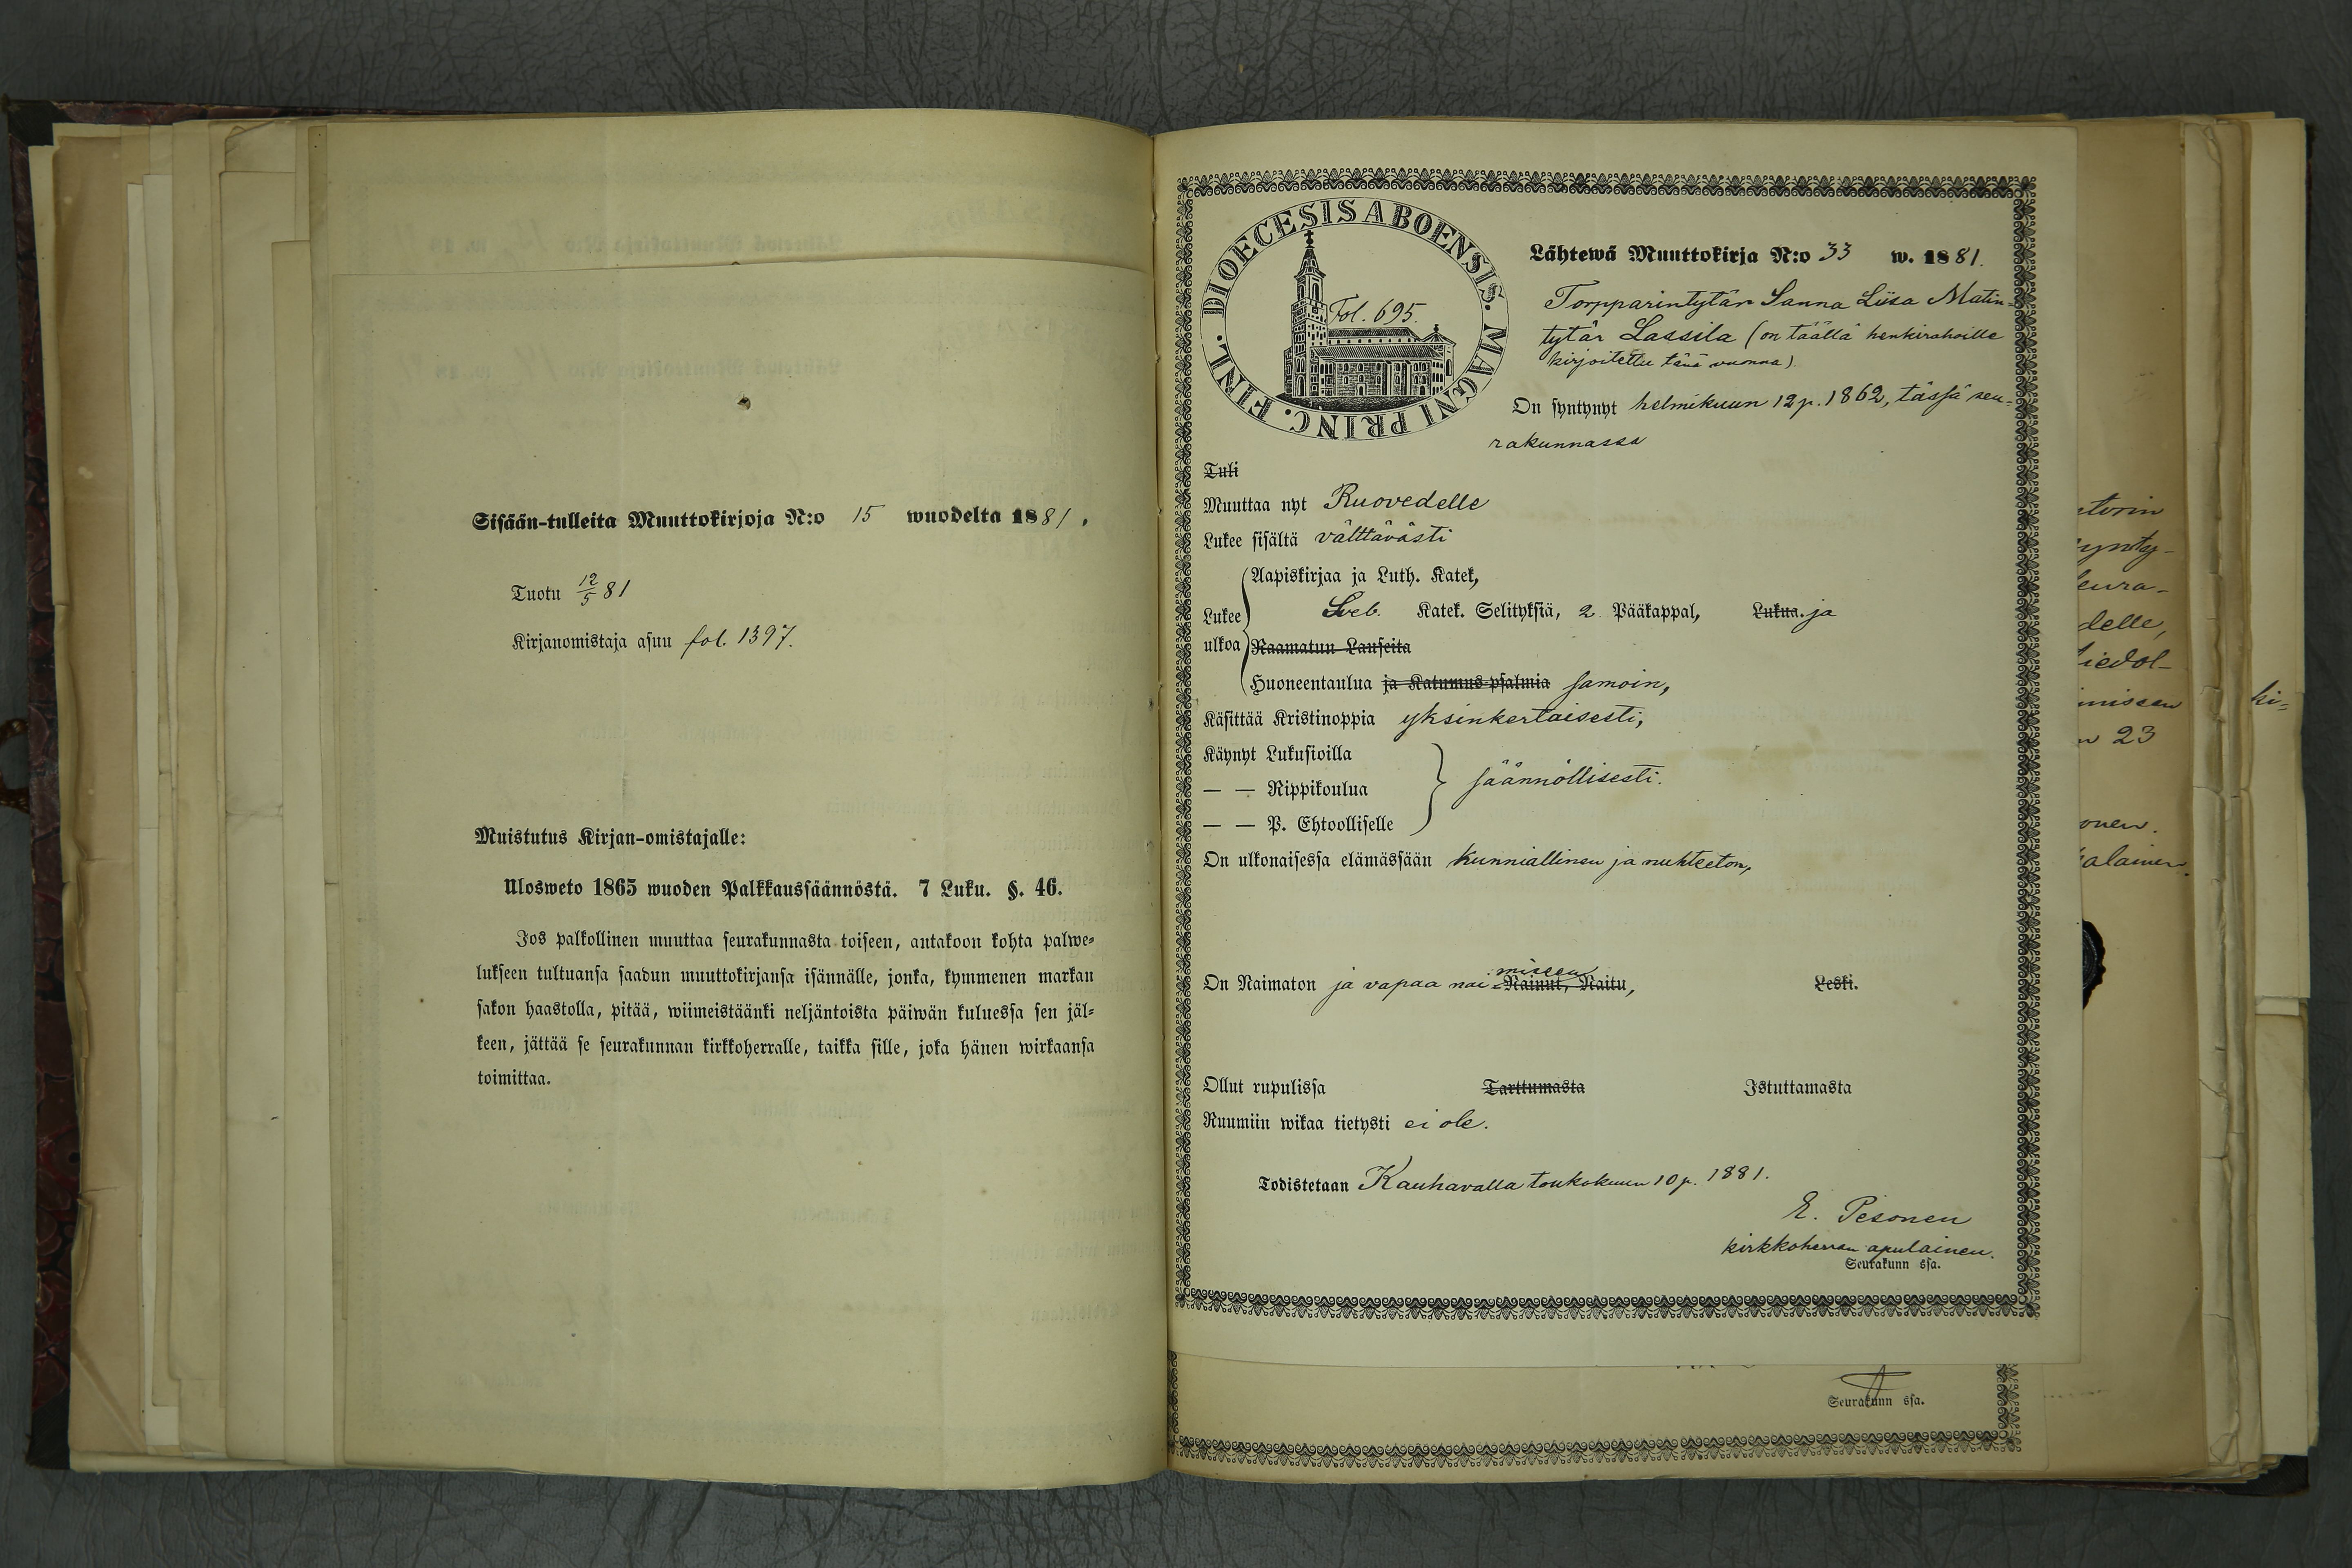 Sisään-tulleita Muuttokirjoja N:o 15 wuodelta 1881.
Tuotu 12/5 81
Kirjanomistaja asuu fol. 1397.
Muistutus Kirjan-omistajalle:
Ulosweto 1865 wuoden Palkkaussäännöstä. 7 Luku. §. 46.
Jos palkollinen muuttaa seurakunnasta toiseen, antakoon kohta palwe-
lukseen tultuansa saadun muuttokirjansa isännälle, jonka, kymmenen markan
sakon haastolla, pitää, wiimeistäänki neljäntoista päiwän kuluessa sen jäl-
keen, jättää se seurakunnan kirkkoherralle, taikka sille, joka hänen wirkaansa
toimittaa.
DIOECESIS ABOENSIS. MAGNI PRINC. FINL.
Fol. 695.
Lähtewä Muuttokirja N:o 33 w. 1881.
Torpparintytär Sanna Liisa Matin-
tytär Lassila (on täällä henkirahoille
kirjoitettu tänä vuonna).
On syntynyt helmikuun 12 p. 1862, tässä seu-
rakunnassa
Tuli
Muuttaa nyt Ruovedelle
Lukee sisältä välttävästi
Aapiskirjaa ja Luth. Katek,
Lukee Sveb. Katek. Selityksiä, 2 Pääkappal, Lukua. ja
ulkoa Raamatun Lauseita
Huoneentaulua ja Katumus-psalmia samoin,
Käsittää Kristinoppia yksinkertaisesti,
Käynyt Lukusioilla
— — Rippikoulua säännöllisesti.
— — P. Ehtoolliselle
On ulkonaisessa elämässään kunniallinen ja nuhteeton,
On Naimaton ja vapaa nai-miseen Nainut, Naitu, Leski.
Ollut rupulissa Tarttumasta Istuttamasta
Ruumiin wikaa tietysti ei ole.
Todistetaan Kauhavalla toukokuun 10 p. 1881.
E. Pesonen
kirkkoherran apulainen.
Seurakunn ssa.
Seurakunn ssa.
delle,
23